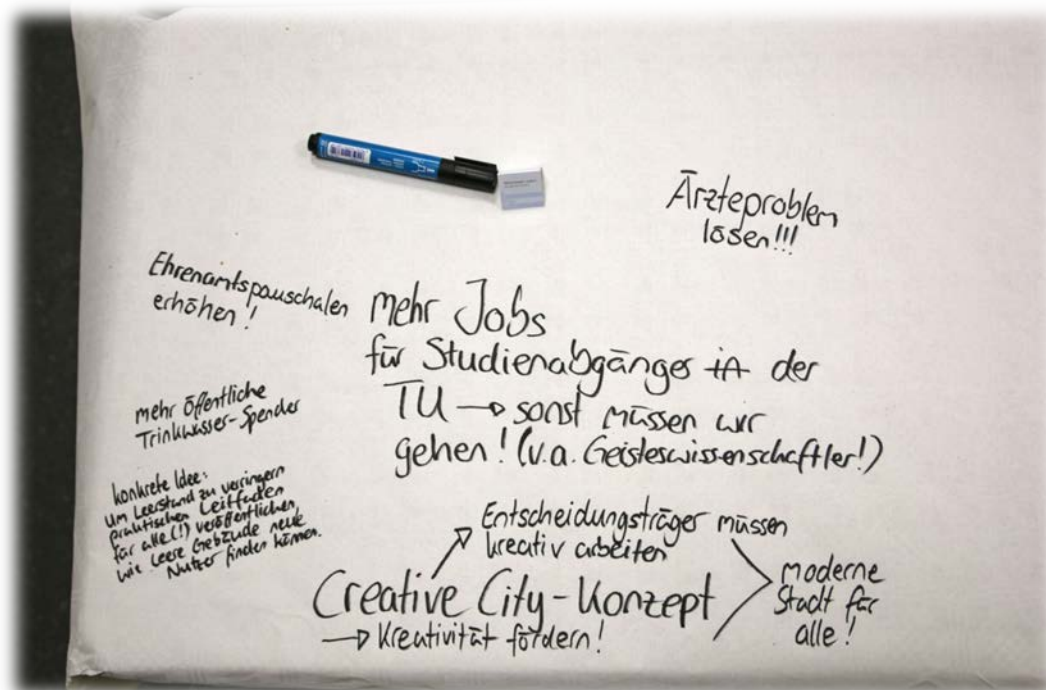 Ärzteproblem
lösen!!!
Ehrenamtspauschalen
erhöhen!
mehr Jobs
für Studienabgänger in der
TU → sonst müssen wir
gehen! (v.a. Geisteswissenschaftler!)
mehr öffentliche
Trinkwasser-Spender
konkrete Idee:
um Leerstand zu verringern
praktischen Leitfaden
für alle (!) veröffentlichen,
wie leere Gebäude neue
Nutzer finden können.
Entscheidungsträger müssen
kreativ arbeiten
Creative City-Konzept
→ Kreativität fördern!
moderne
Stadt für
alle!